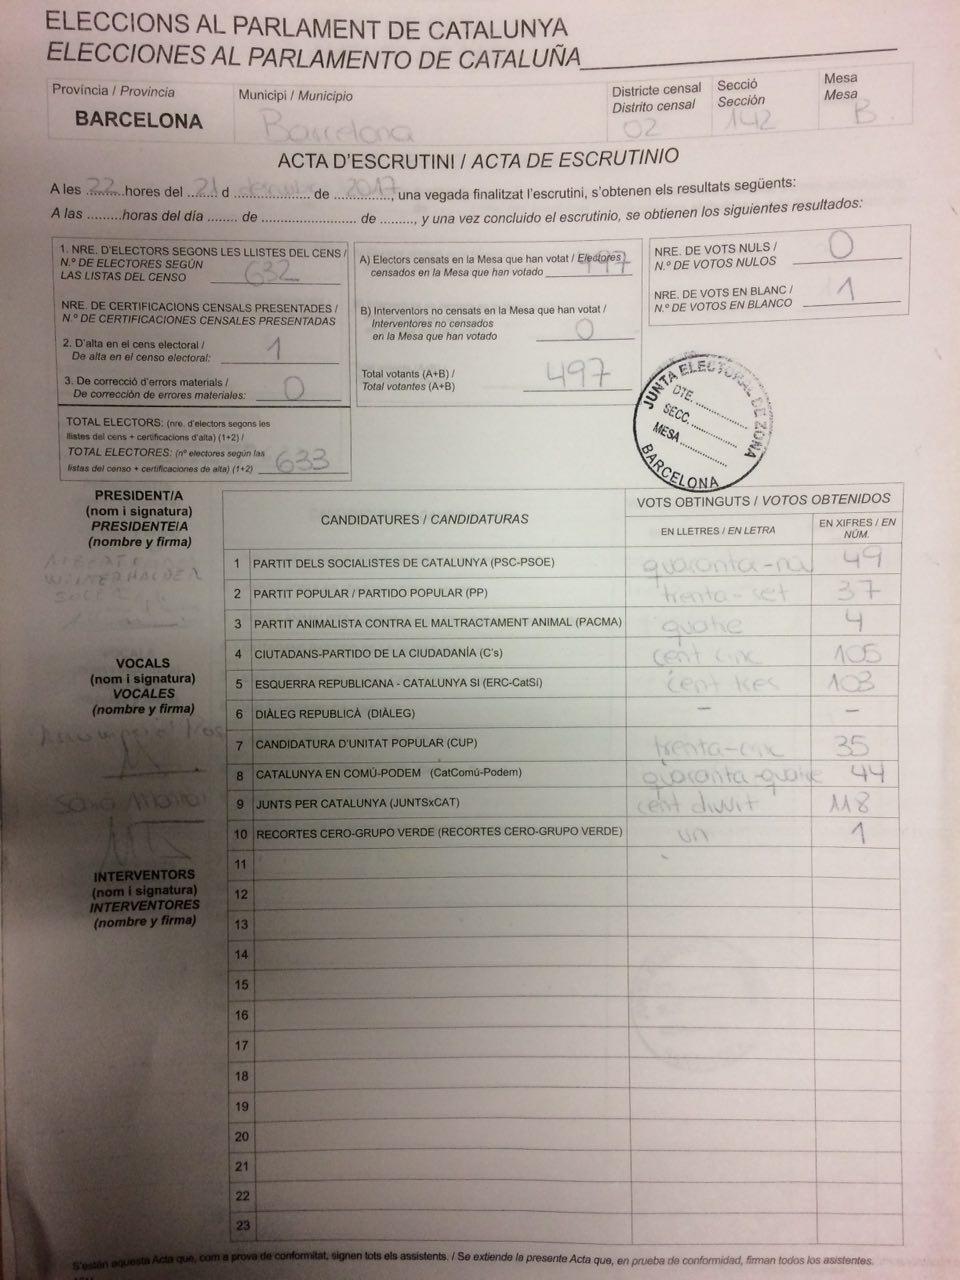 ELECCIONS AL PARLAMENT DE CATALUNYA
ELECCIONES AL PARLAMENTO DE CATALUÑA
Província / Provincia
BARCELONA
Municipi / Municipio
Barcelona
Districte censal
Distrito censal
02
Secció
Sección
142
Mesa
Mesa
B
ACTA D'ESCRUTINI / ACTA DE ESCRUTINIO
A les 22 hores del 21 d de 2017, una vegada finalitzat l'escrutini, s'obtenen els resultats següents:
A las ......... horas del día ........ de ........................ de ........., y una vez concluido el escrutinio, se obtienen los siguientes resultados:
1. NRE. D'ELECTORS SEGONS LES LLISTES DEL CENS /
N.º DE ELECTORES SEGÚN
LAS LISTAS DEL CENSO 632
NRE. DE CERTIFICACIONS CENSALS PRESENTADES /
N.º DE CERTIFICACIONES CENSALES PRESENTADAS
2. D'alta en el cens electoral /
De alta en el censo electoral: 1
3. De correcció d'errors materials /
De corrección de errores materiales: 0
TOTAL ELECTORS: (nre. d'electors segons les
llistes del cens + certificacions d'alta) (1+2) /
TOTAL ELECTORES: (nº electores según las
listas del censo + certificaciones de alta) (1+2) 633
A) Electors censats en la Mesa que han votat / Electores
censados en la Mesa que han votado 497
B) Interventors no censats en la Mesa que han votat /
Interventores no censados
en la Mesa que han votado 0
Total votants (A+B) /
Total votantes (A+B) 497
NRE. DE VOTS NULS /
N.º DE VOTOS NULOS 0
NRE. DE VOTS EN BLANC /
N.º DE VOTOS EN BLANCO 1
JUNTA ELECTORAL DE ZONA
DTE. ..............
SECC. ..............
MESA ..............
BARCELONA
PRESIDENT/A
(nom i signatura)
PRESIDENTE/A
(nombre y firma)
WINTERHALDER
VOCALS
(nom i signatura)
VOCALES
(nombre y firma)
INTERVENTORS
(nom i signatura)
INTERVENTORES
(nombre y firma)
CANDIDATURES / CANDIDATURAS
VOTS OBTINGUTS / VOTOS OBTENIDOS
EN LLETRES / EN LETRA
EN XIFRES / EN
NÚM.
1 PARTIT DELS SOCIALISTES DE CATALUNYA (PSC-PSOE) quaranta-nou 49
2 PARTIT POPULAR / PARTIDO POPULAR (PP) trenta-set 37
3 PARTIT ANIMALISTA CONTRA EL MALTRACTAMENT ANIMAL (PACMA) quatre 4
4 CIUTADANS-PARTIDO DE LA CIUDADANÍA (C's) cent cinc 105
5 ESQUERRA REPUBLICANA - CATALUNYA SI (ERC-CatSí) cent tres 103
6 DIÀLEG REPUBLICÀ (DIÀLEG) – –
7 CANDIDATURA D'UNITAT POPULAR (CUP) trenta-cinc 35
8 CATALUNYA EN COMÚ-PODEM (CatComú-Podem) quaranta-quatre 44
9 JUNTS PER CATALUNYA (JUNTSxCAT) cent divuit 118
10 RECORTES CERO-GRUPO VERDE (RECORTES CERO-GRUPO VERDE) un 1
11
12
13
14
15
16
17
18
19
20
21
22
23
S'estén aquesta Acta que, com a prova de conformitat, signen tots els assistents. / Se extiende la presente Acta que, en prueba de conformidad, firman todos los asistentes.